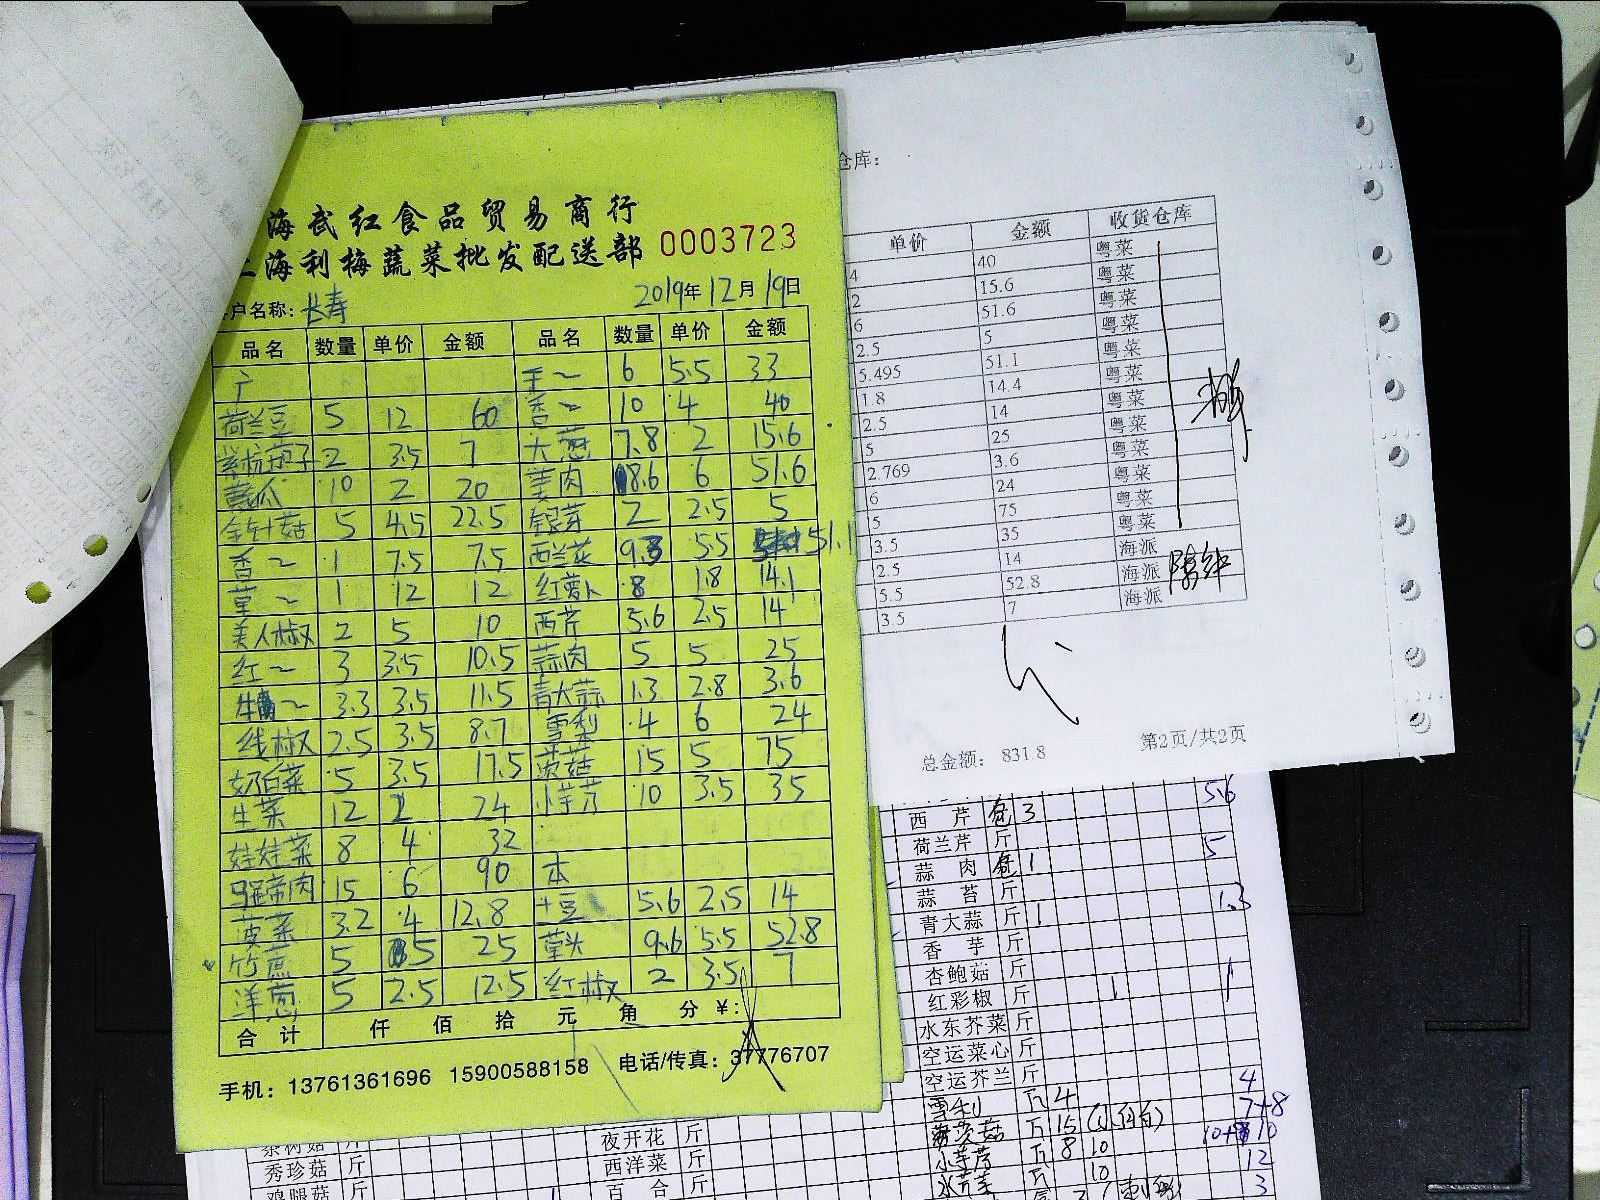 海武红食品贸易商行
上海利梅蔬菜批发配送部 0003723
户名称: 长寿 2019年12月19日
品名 数量 单价 金额 品名 数量 单价 金额
6 5.5 33
荷兰豆 5 12 60 香~ 10 4 40
2 3.5 7 大葱 7.8 2 15.6
黄瓜 10 2 20 姜肉 8.6 6 51.6
金针菇 5 4.5 22.5 银芽 2 2.5 5
香~ 1 7.5 7.5 西兰花 9.3 5.5 51.1
草~ 1 12 12 红萝卜 8 1.8 14.1
美人椒 2 5 10 西芹 5.6 2.5 14
红~ 3 3.5 10.5 蒜肉 5 5 25
牛~ 3.3 3.5 11.5 青大蒜 1.3 2.8 3.6
线椒 2.5 3.5 8.7 雪梨 4 6 24
奶白菜 5 3.5 17.5 茨菇 15 5 75
生菜 12 2 24 小芋艿 10 3.5 35
娃娃菜 8 4 32
马蹄肉 15 6 90 本
菠菜 3.2 4 12.8 土豆 5.6 2.5 14
竹蔗 5 5 25 草头 9.6 5.5 52.8
洋葱 5 2.5 12.5 红椒 2 3.5 7
合计 仟 佰 拾 元 角 分 ¥:
手机: 13761361696 15900588158 电话/传真: 37776707
仓库:
单价 金额 收货仓库
4 40 粤菜
2 15.6 粤菜
6 51.6 粤菜
2.5 5 粤菜
5.495 51.1 粤菜
1.8 14.4 粤菜
2.5 14 粤菜
5 25 粤菜
2.769 3.6 粤菜
6 24 粤菜
5 75 粤菜
3.5 35 粤菜
2.5 14 海派
5.5 52.8 海派
3.5 7 海派
总金额: 831.8 第2页/共2页
西芹 包 3 5.6
荷兰芹 斤
蒜肉 包 1 5
蒜苔 斤
青大蒜 斤 1 1.3
香芋 斤
杏鲍菇 斤
红彩椒 斤 1 1
水东芥菜 斤
空运菜心 斤
空运芥兰 斤 4
雪利 斤 4 7+8
茨菇 斤 15
小芋艿 斤 8 10
10 12
3
茶树菇 斤 夜开花 斤
秀珍菇 斤 西洋菜 斤
鸡腿菇 斤 百合 斤